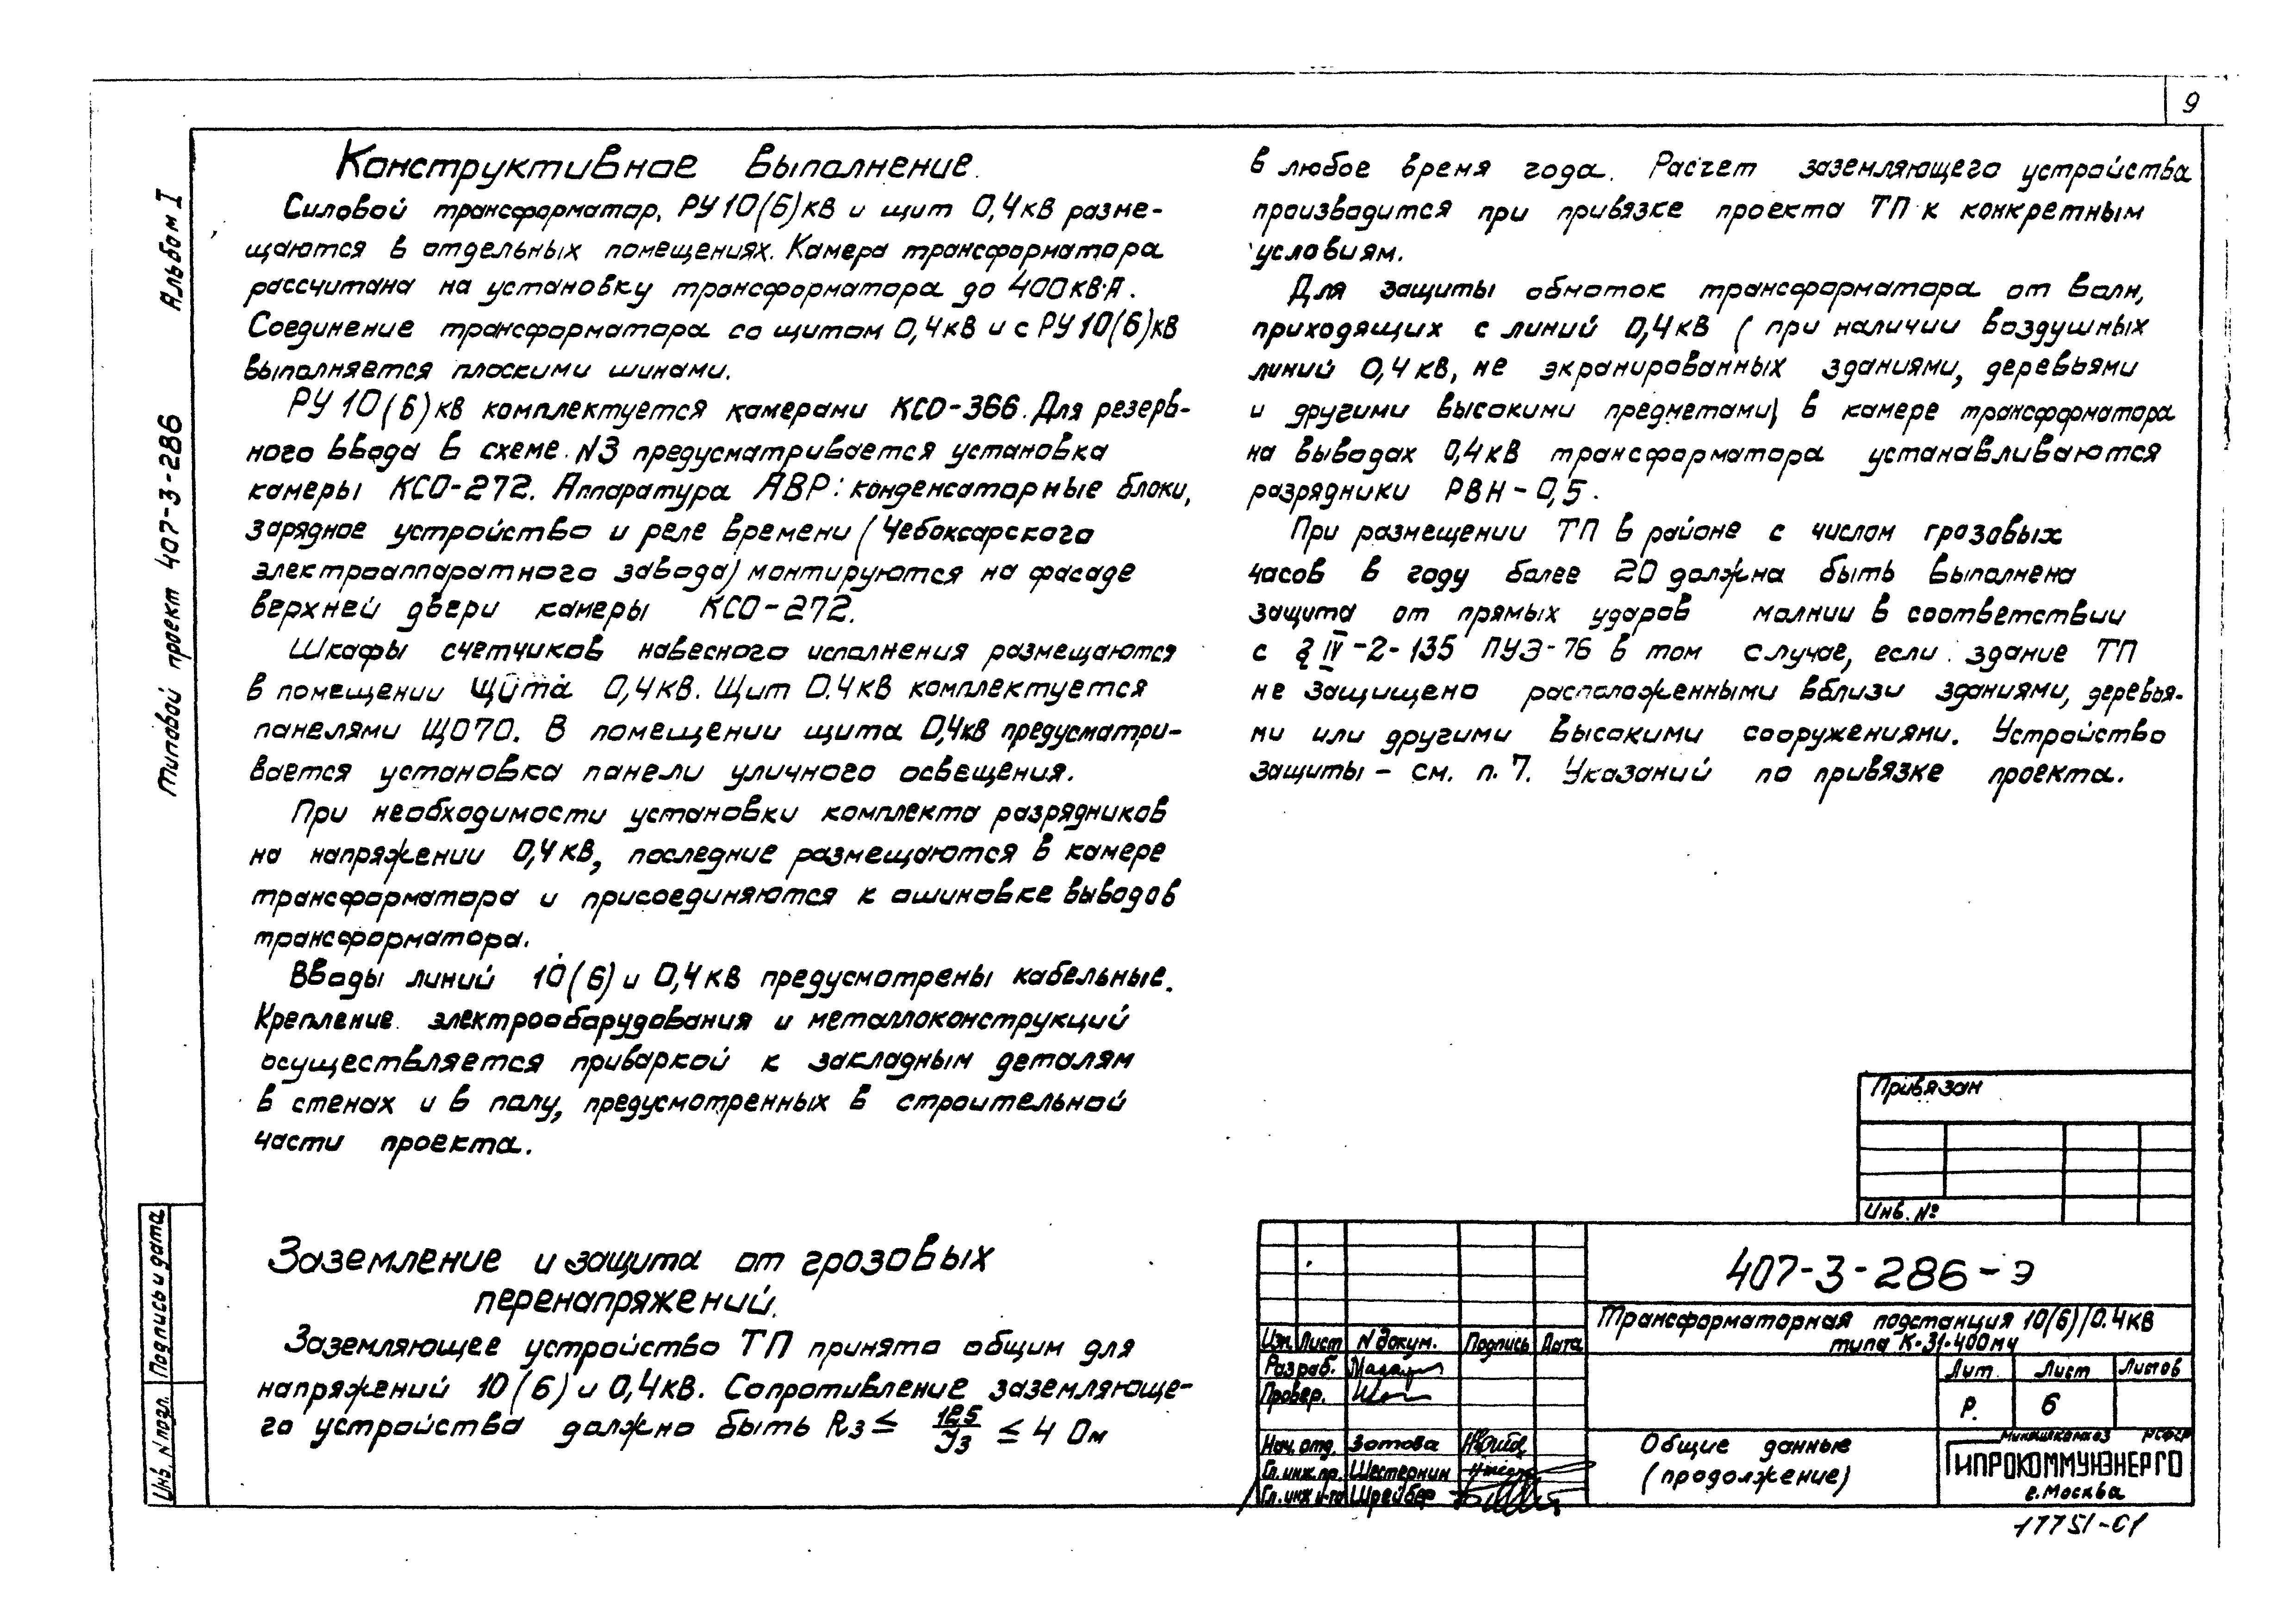 9
Альбом I
Типовой проект 407-3-286
Конструктивное выполнение.
Силовой трансформатор, РУ10(6)кВ и щит 0,4кВ разме-
щаются в отдельных помещениях. Камера трансформатора
рассчитана на установку трансформатора до 400кВ·А.
Соединение трансформатора со щитом 0,4кВ и с РУ10(6)кВ
выполняется плоскими шинами.
РУ 10(6)кВ комплектуется камерами КСО-366. Для резерв-
ного ввода в схеме N3 предусматривается установка
камеры КСО-272. Аппаратура АВР: конденсаторные блоки,
зарядное устройство и реле времени (Чебоксарского
электроаппаратного завода) монтируются на фасаде
верхней двери камеры КСО-272.
Шкафы счетчиков навесного исполнения размещаются
в помещении щита 0,4кВ. Щит 0.4кВ комплектуется
панелями ЩО70. В помещении щита 0,4кВ предусматри-
вается установка панели уличного освещения.
При необходимости установки комплекта разрядников
на напряжении 0,4кВ, последние размещаются в камере
трансформатора и присоединяются к ошиновке выводов
трансформатора.
Вводы линий 10(6) и 0,4кВ предусмотрены кабельные.
Крепление электрооборудования и металлоконструкций
осуществляется приваркой к закладным деталям
в стенах и в полу, предусмотренных в строительной
части проекта.
Заземление и защита от грозовых
перенапряжений.
Заземляющее устройство ТП принято общим для
напряжений 10(6) и 0,4кВ. Сопротивление заземляюще-
го устройства должно быть Rз ≤ 125/Jз ≤ 4 Ом
в любое время года. Расчет заземляющего устройства
производится при привязке проекта ТП к конкретным
условиям.
Для защиты обмоток трансформатора от волн,
приходящих с линий 0,4кВ (при наличии воздушных
линий 0,4кВ, не экранированных зданиями, деревьями
и другими высокими предметами) в камере трансформатора
на выводах 0,4кВ трансформатора устанавливаются
разрядники РВН-0,5.
При размещении ТП в районе с числом грозовых
часов в году более 20 должна быть выполнена
защита от прямых ударов молнии в соответствии
с § IV-2-135 ПУЭ-76 в том случае, если здание ТП
не защищено расположенными вблизи зданиями, деревья-
ми или другими высокими сооружениями. Устройство
защиты - см. п. 7. Указаний по привязке проекта.
Привязан
Инв. №
407-3-286-Э
Трансформаторная подстанция 10(6)/0.4кВ
типа К-31-400м4
Изм. Лист N докум. Подпись Дата
Разраб.
Провер.
Нач. отд. Зотова
Гл. инж. пр. Шестернин
Гл. инж и-та Шрейбер
Лит. Лист Листов
Р. 6
Общие данные
(продолжение)
Минжилкомхоз РСФСР
ГИПРОКОММУНЭНЕРГО
г. Москва
17751-01
Подпись и дата
Инв. N подл.